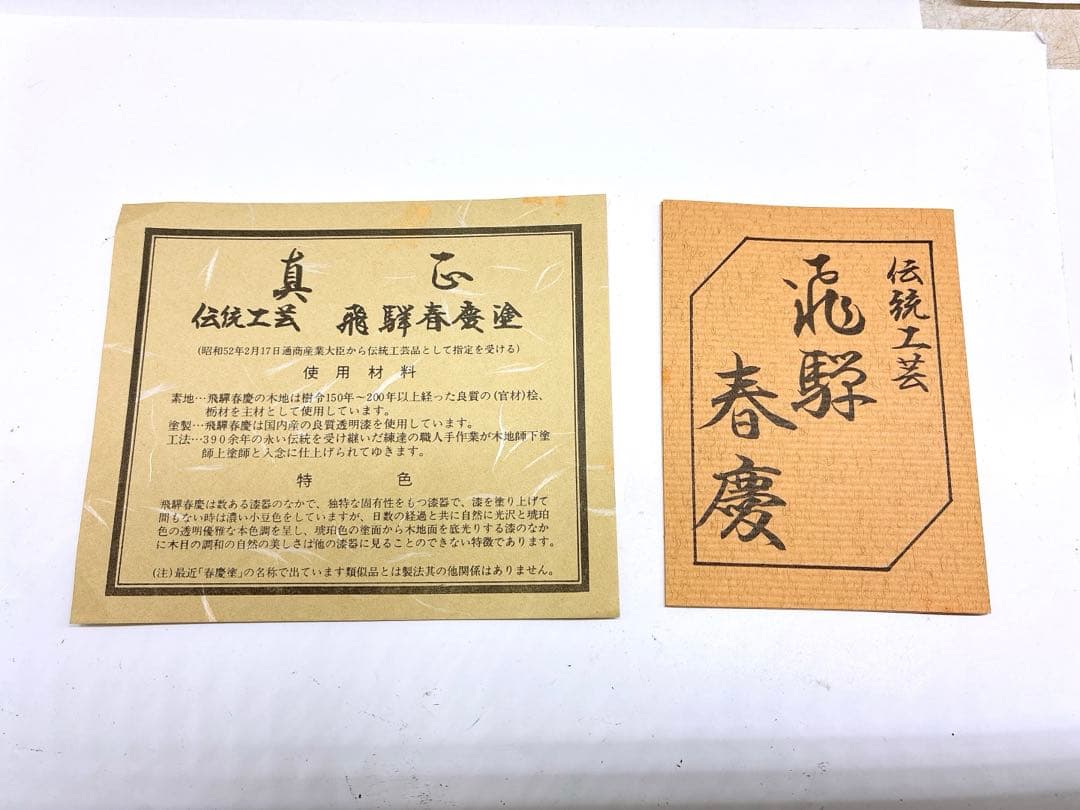 真正
伝統工芸 飛騨春慶塗
(昭和52年2月17日通商産業大臣から伝統工芸品として指定を受ける)
使用材料
素地…飛騨春慶の木地は樹令150年〜200年以上経った良質の(官材)桧、
栃材を主材として使用しています。
塗製…飛騨春慶は国内産の良質透明漆を使用しています。
工法…390余年の永い伝統を受け継いだ練達の職人手作業が木地師下塗
師上塗師と入念に仕上げられてゆきます。
特色
飛騨春慶は数ある漆器のなかで、独特な固有性をもつ漆器で、漆を塗り上げて
間もない時は濃い小豆色をしていますが、日数の経過と共に自然に光沢と琥珀
色の透明優雅な本色調を呈し、琥珀色の塗面から木地面を底光りする漆のなか
に木目の調和の自然の美しさは他の漆器に見ることのできない特徴であります。
(注)最近「春慶塗」の名称で出ています類似品とは製法其の他関係はありません。
伝統工芸
飛騨
春慶